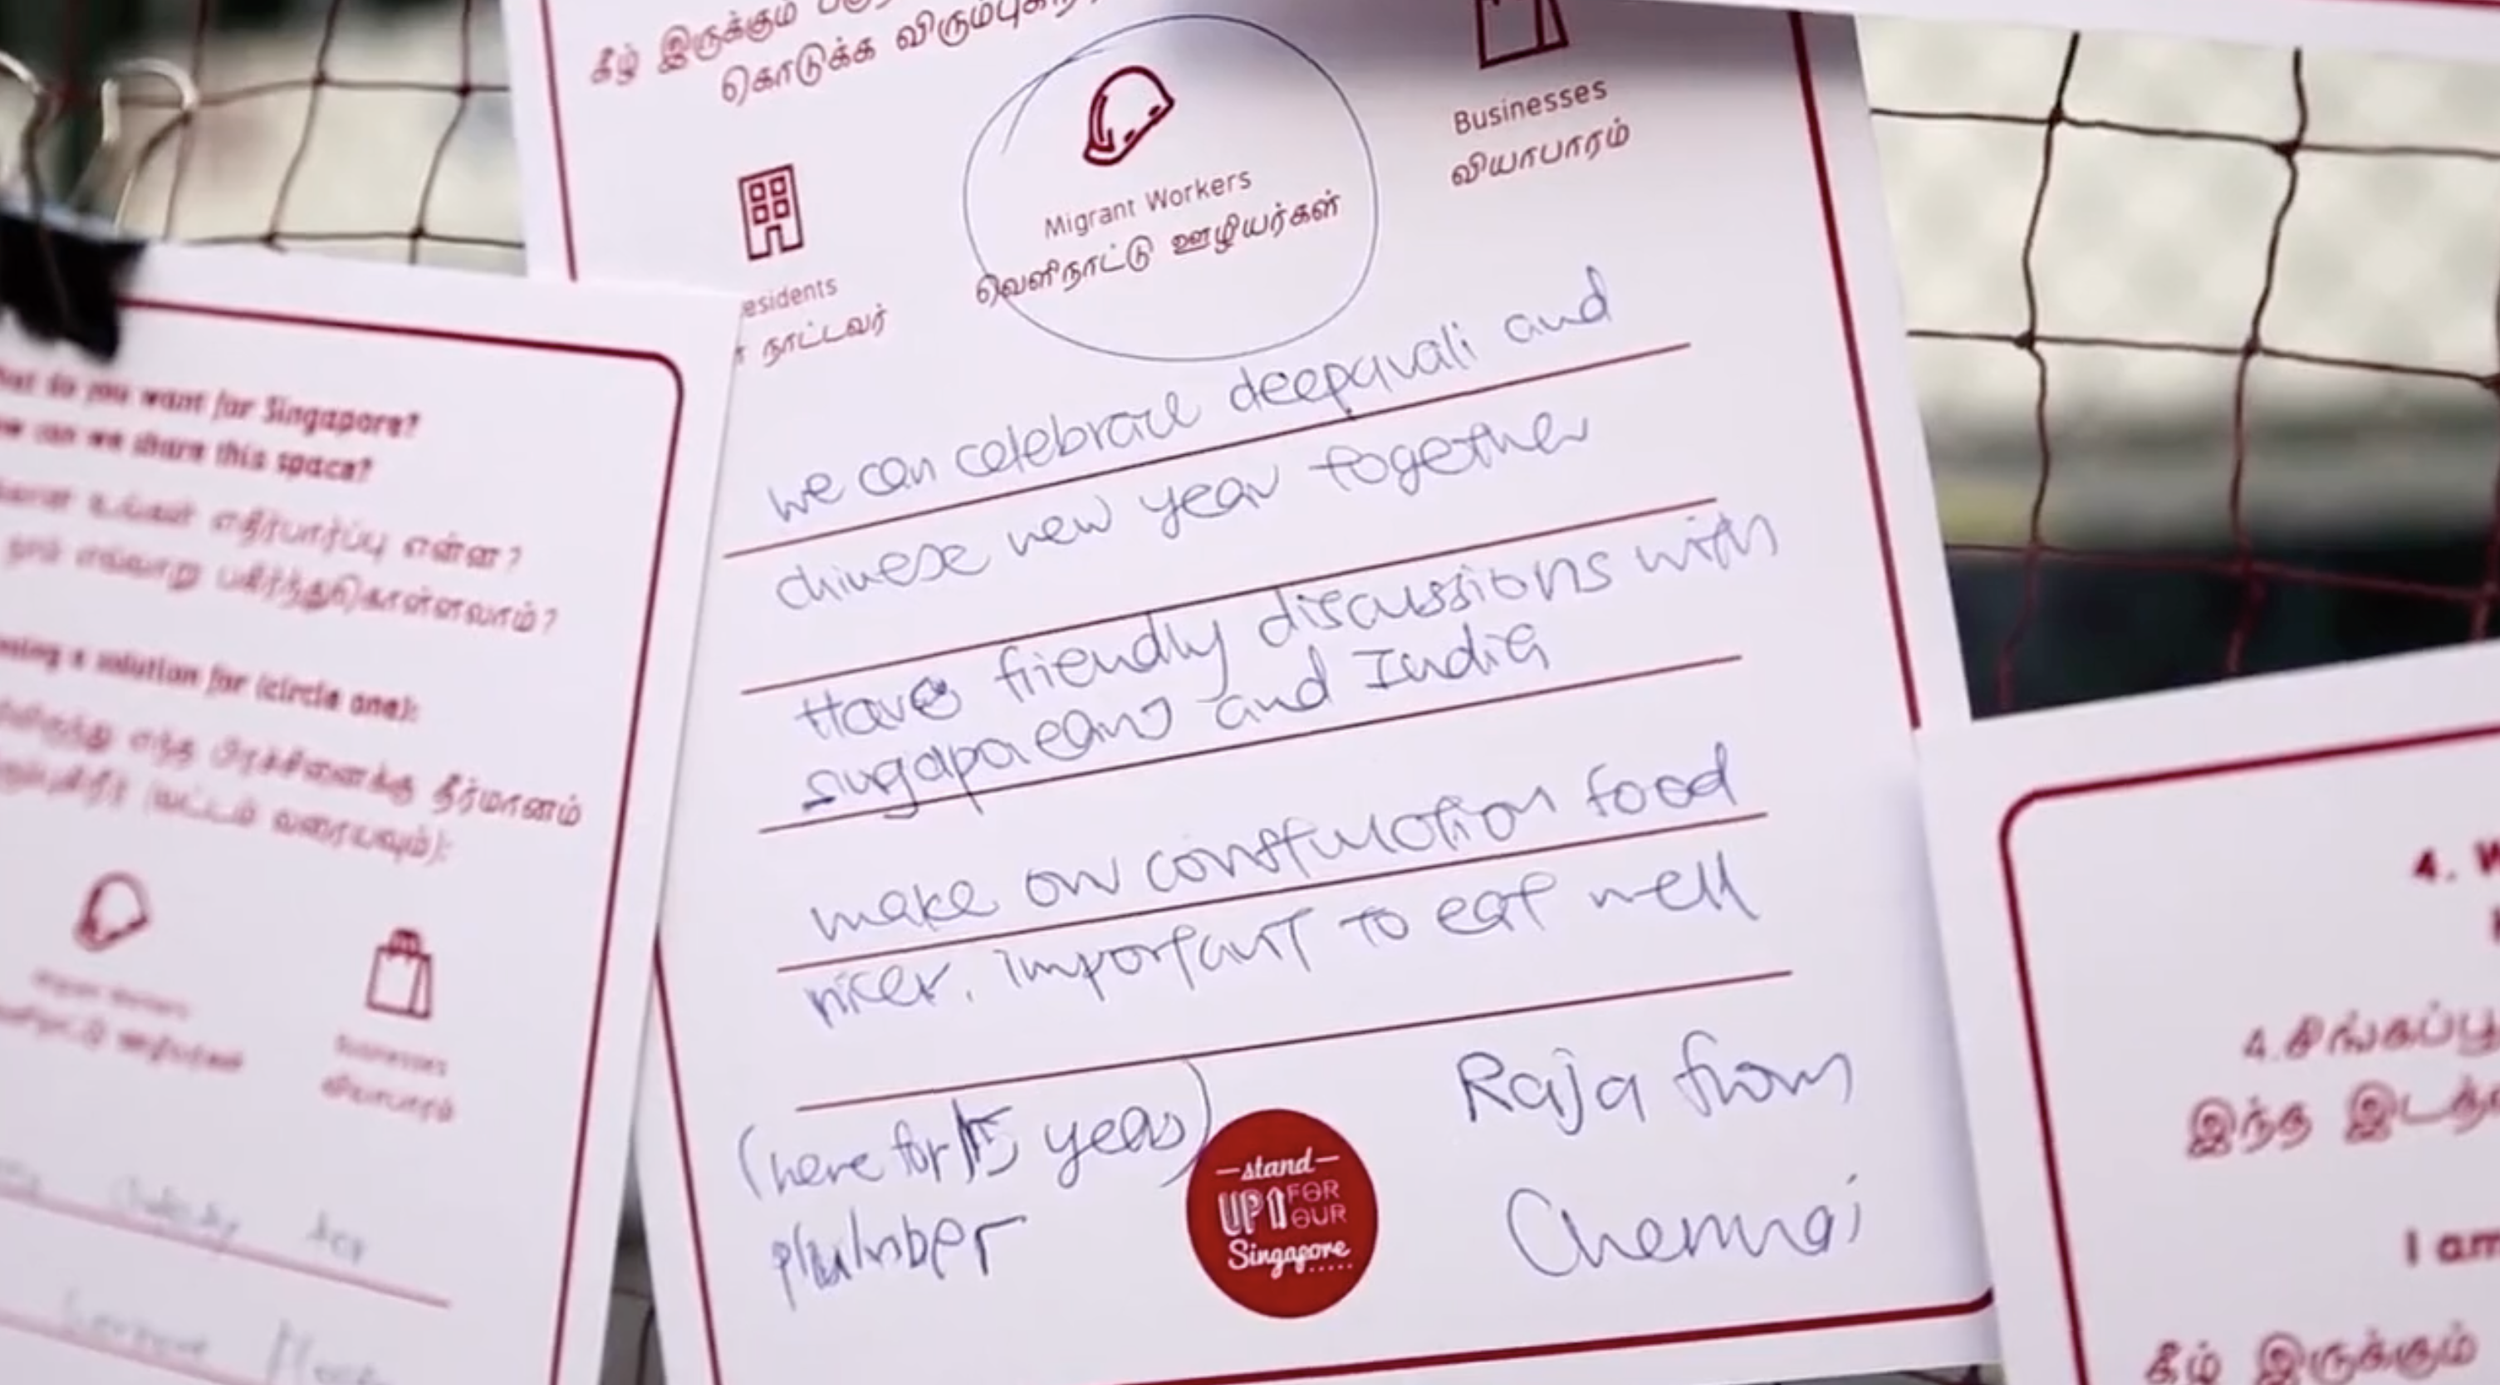 கீழ் இருக்கும்
கொடுக்க
Businesses
வியாபாரம்
Migrant Workers
வெளிநாட்டு ஊழியர்கள்
esidents
நாட்டவர்
we can celebrate deepavali and
chinese new year together
Have friendly discussions with
singaporeans and India
make our construction food
nicer. important to eat well
(here for 15 years)
plumber
Raja from
Chennai
stand
UP FOR
OUR
Singapore
do you want for Singapore?
can we share this space?
உங்கள் எதிர்பார்ப்பு என்ன?
நாம் எவ்வாறு பகிர்ந்துகொள்ளலாம்?
a solution for (circle one):
எந்த பிரச்சினைக்கு தீர்மானம்
(வட்டம் வரையவும்):
Migrant Workers
ஊழியர்கள்
Businesses
வியாபாரம்
4. W
4.சிங்கப்பூ
இந்த
I am
கீழ் இருக்கும்